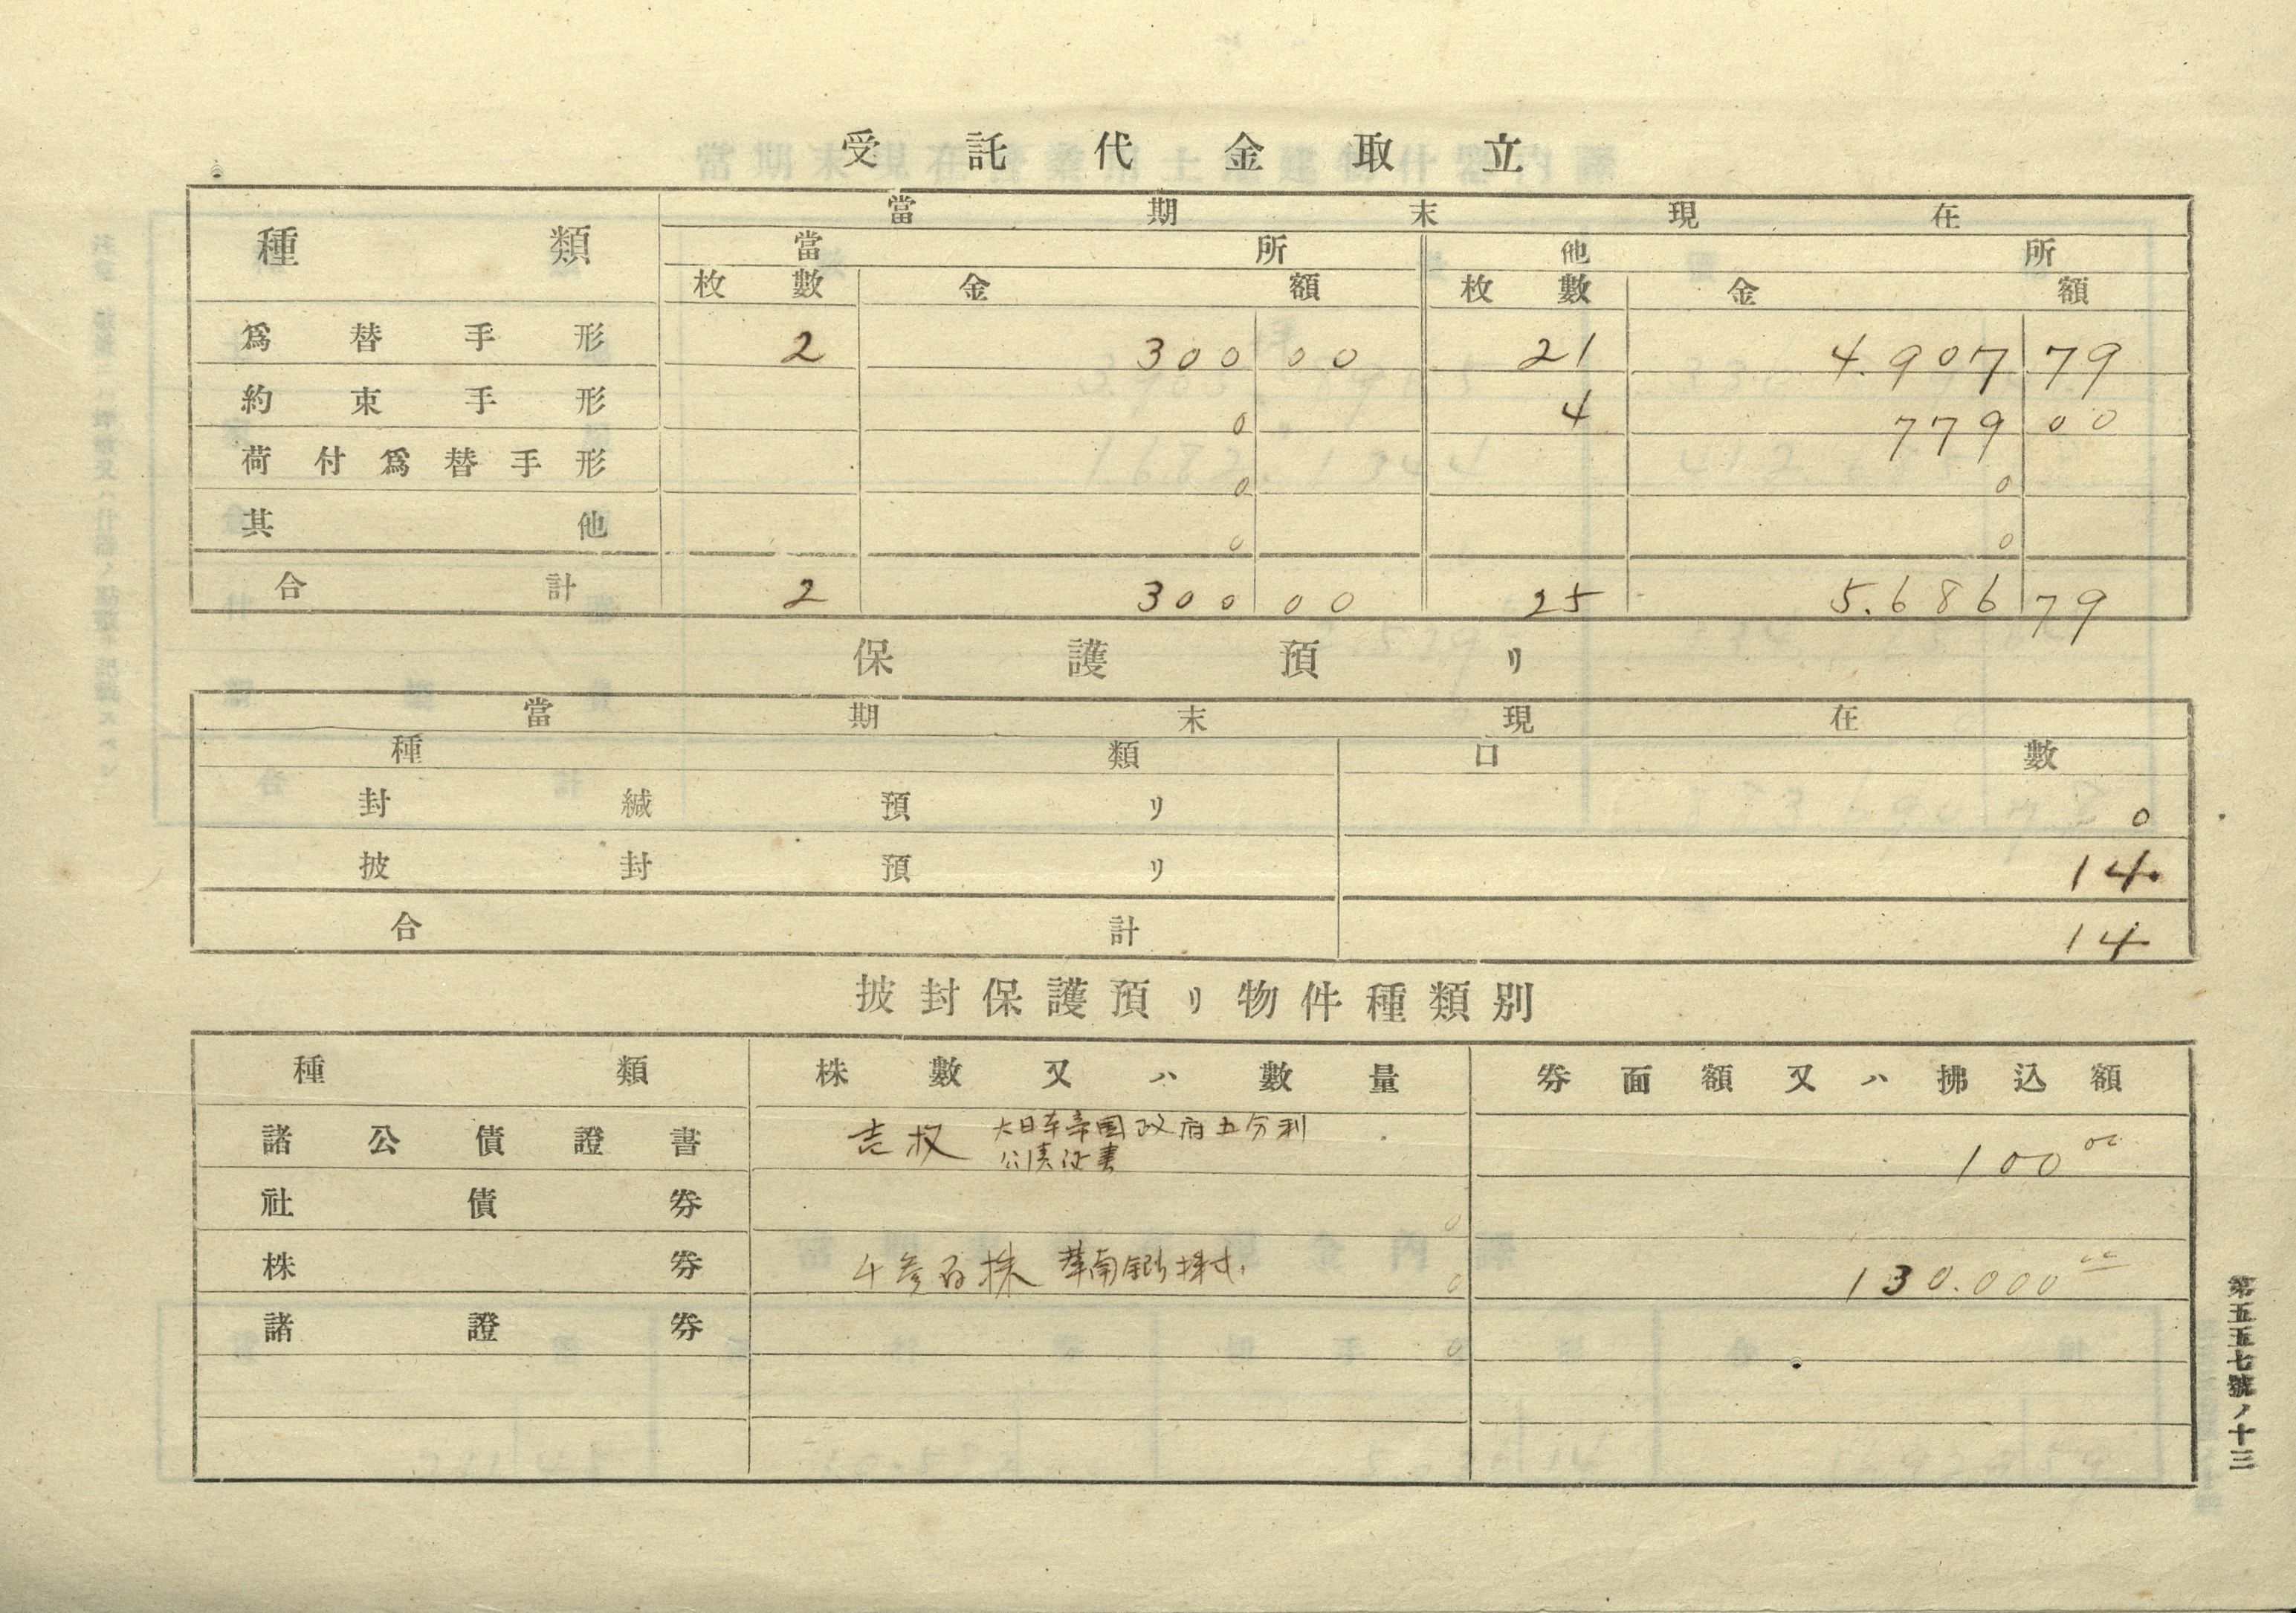 受託代金取立
種類 當期末現在
當所 他所
枚數 金額 枚數 金額
爲替手形 2 300 00 21 4.907 79
約束手形 0 4 779 00
荷付爲替手形 0 0
其他 0 0
合計 2 300 00 25 5.686 79
保護預リ
當期末現在
種類 口數
封緘預リ 0
披封預リ 14.
合計 14
披封保護預リ物件種類別
種類 株數又ハ數量 券面額又ハ拂込額
諸公債證書 壱枚 大日本帝国政府五分利 100 00
公債证書
社債券 0
株券 千参百株 華南銀株式 0 130.000 00
諸證券 0
第五五七號ノ十三